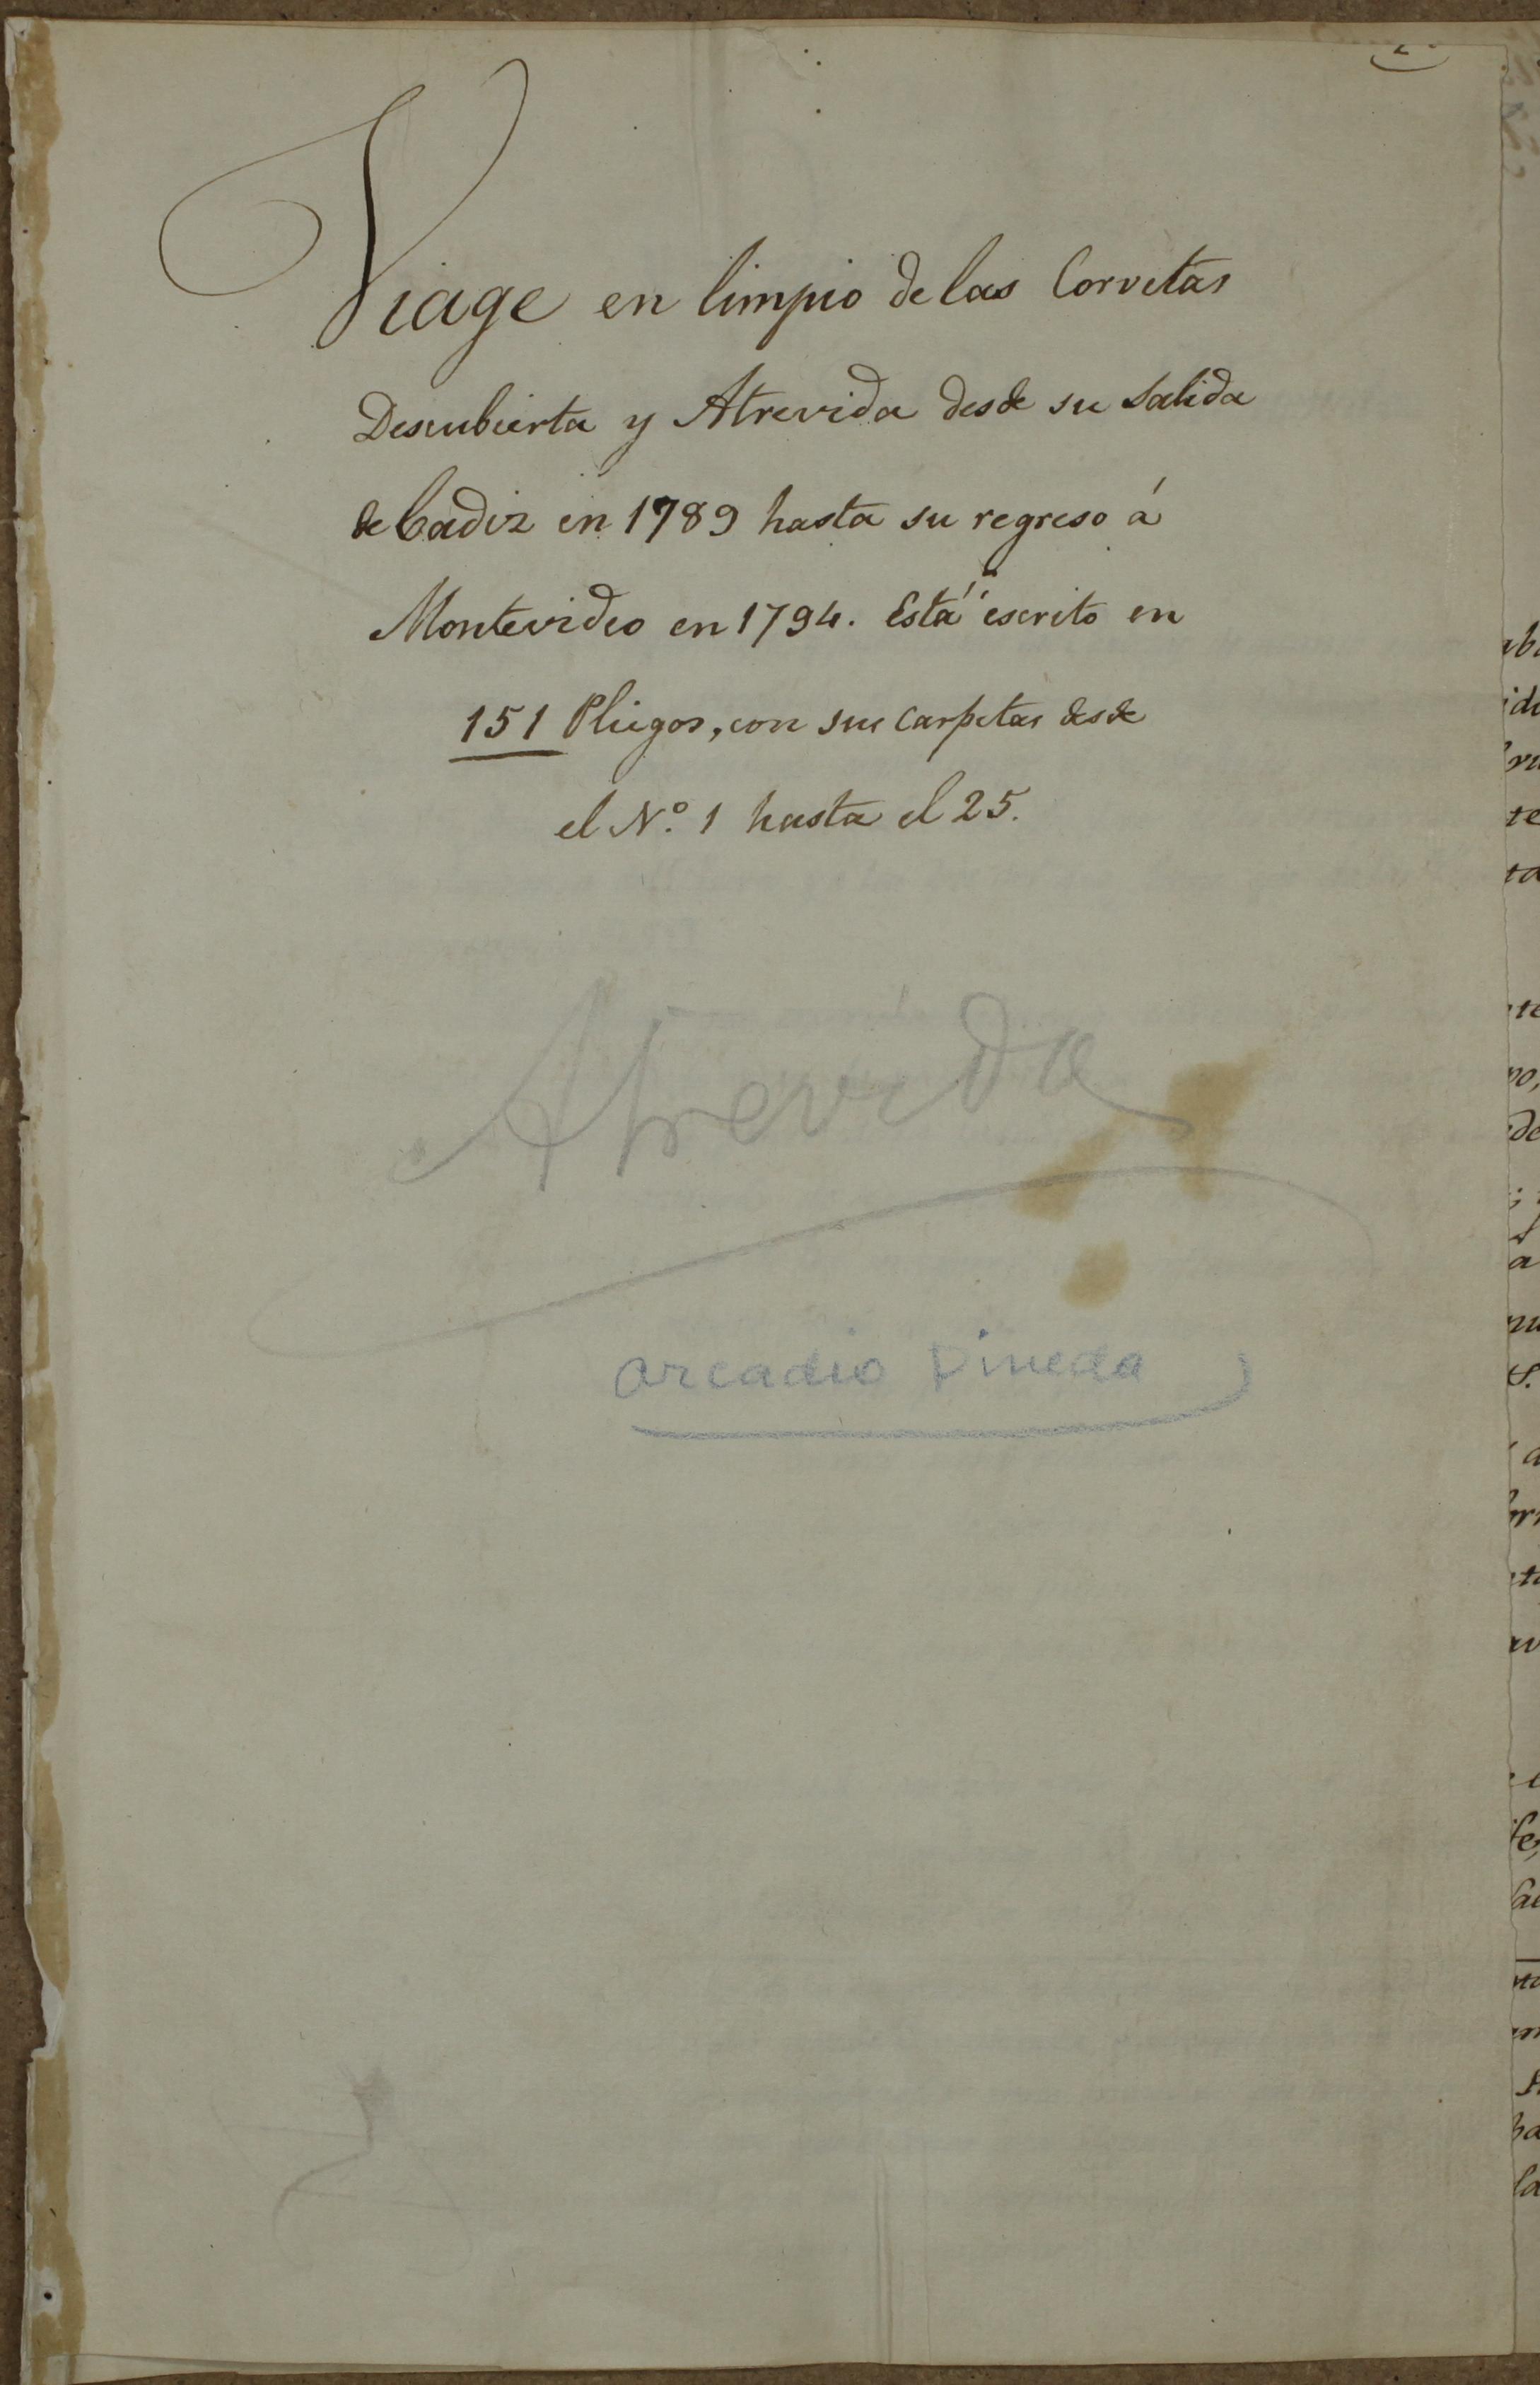 Viage en limpio de las Corvetas
Descubierta y Atrevida desde su Salida
de Cadiz en 1789 hasta su regreso á
Montevideo en 1794. Está escrito en
151 Pliegos, con sus carpetas desde
el N.º 1 hasta el 25.
Atrevida
Arcadio Pineda